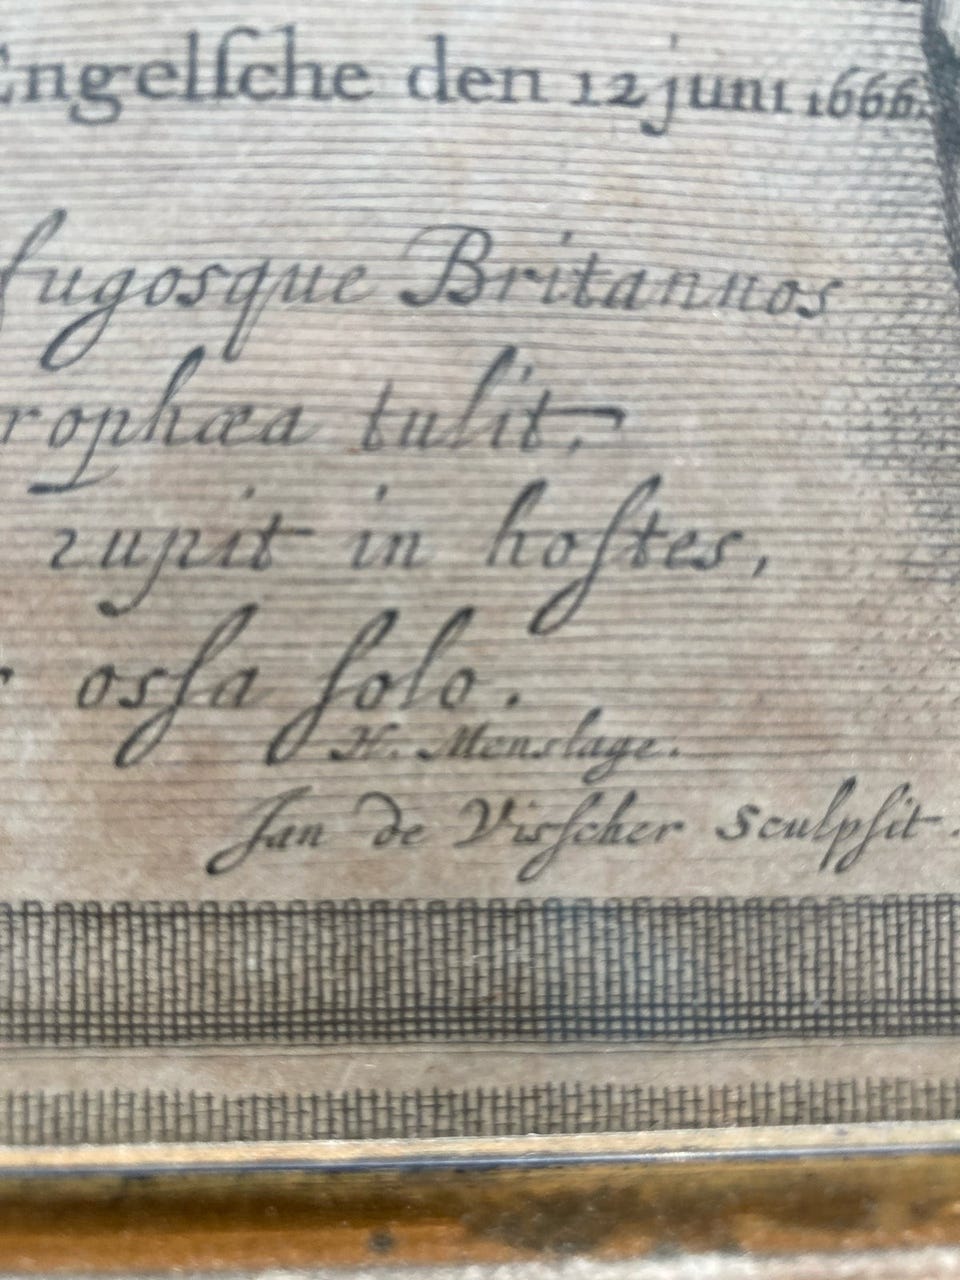 Engelſche den 12 juni 1666.
fugosque Britannos
rophæa tulit,
rupit in hoſtes,
osſa ſolo.
H. Menslage.
Jan de Visſcher Sculpſit.